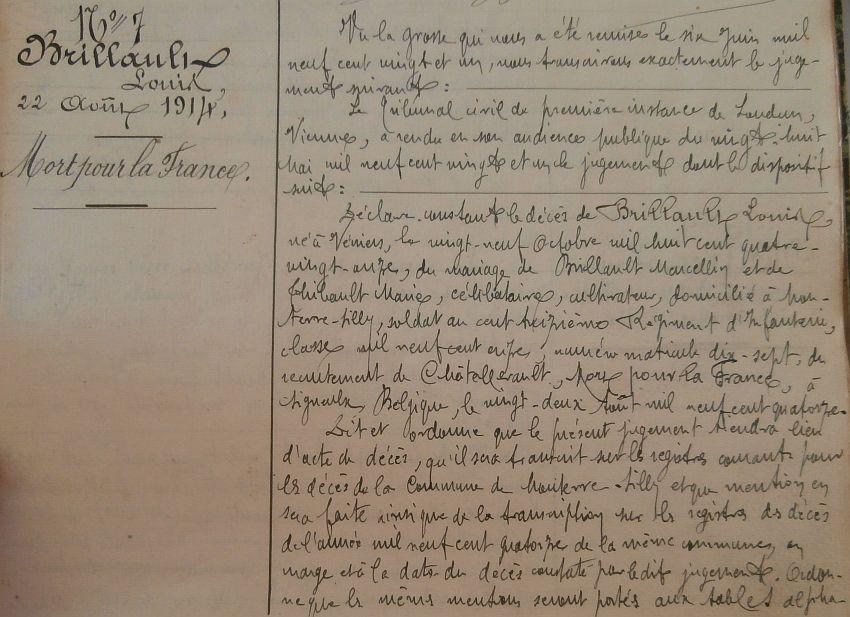 N° 7
Brillault
Louis,
22 Août 1914,
Mort pour la France.
Vu la grosse qui nous a été remise le six Juin mil
neuf cent vingt et un, nous transcrivons exactement le juge-
ment suivant :
Le Tribunal civil de première instance de Loudun,
Vienne, a rendu en son audience publique du vingt-huit
Mai mil neuf cent vingt et un le jugement dont le dispositif
suit :
Déclare constant le décès de Brillault Louis,
né à Véniers, le vingt-neuf Octobre mil huit cent quatre-
vingt-onze, du mariage de Brillault Marcellin et de
Thibault Marie, célibataire, cultivateur, domicilié à Mon-
terre-Silly, soldat au cent treizième Régiment d'Infanterie,
classe mil neuf cent onze, numéro matricule dix-sept, du
recrutement de Châtellerault, Mort pour la France, à
Signeulx, Belgique, le vingt-deux Août mil neuf cent quatorze.
Dit et ordonne que le présent jugement tiendra lieu
d'acte de décès, qu'il sera transcrit sur les registres courants pour
les décès de la Commune de Mouterre-Silly et que mention en
sera faite ainsi que de la transcription sur les registres des décès
de l'année mil neuf cent quatorze de la même commune, en
marge et à la date du décès constaté par ledit jugement. Ordon-
ne que les mêmes mentions seront portées aux tables alpha-